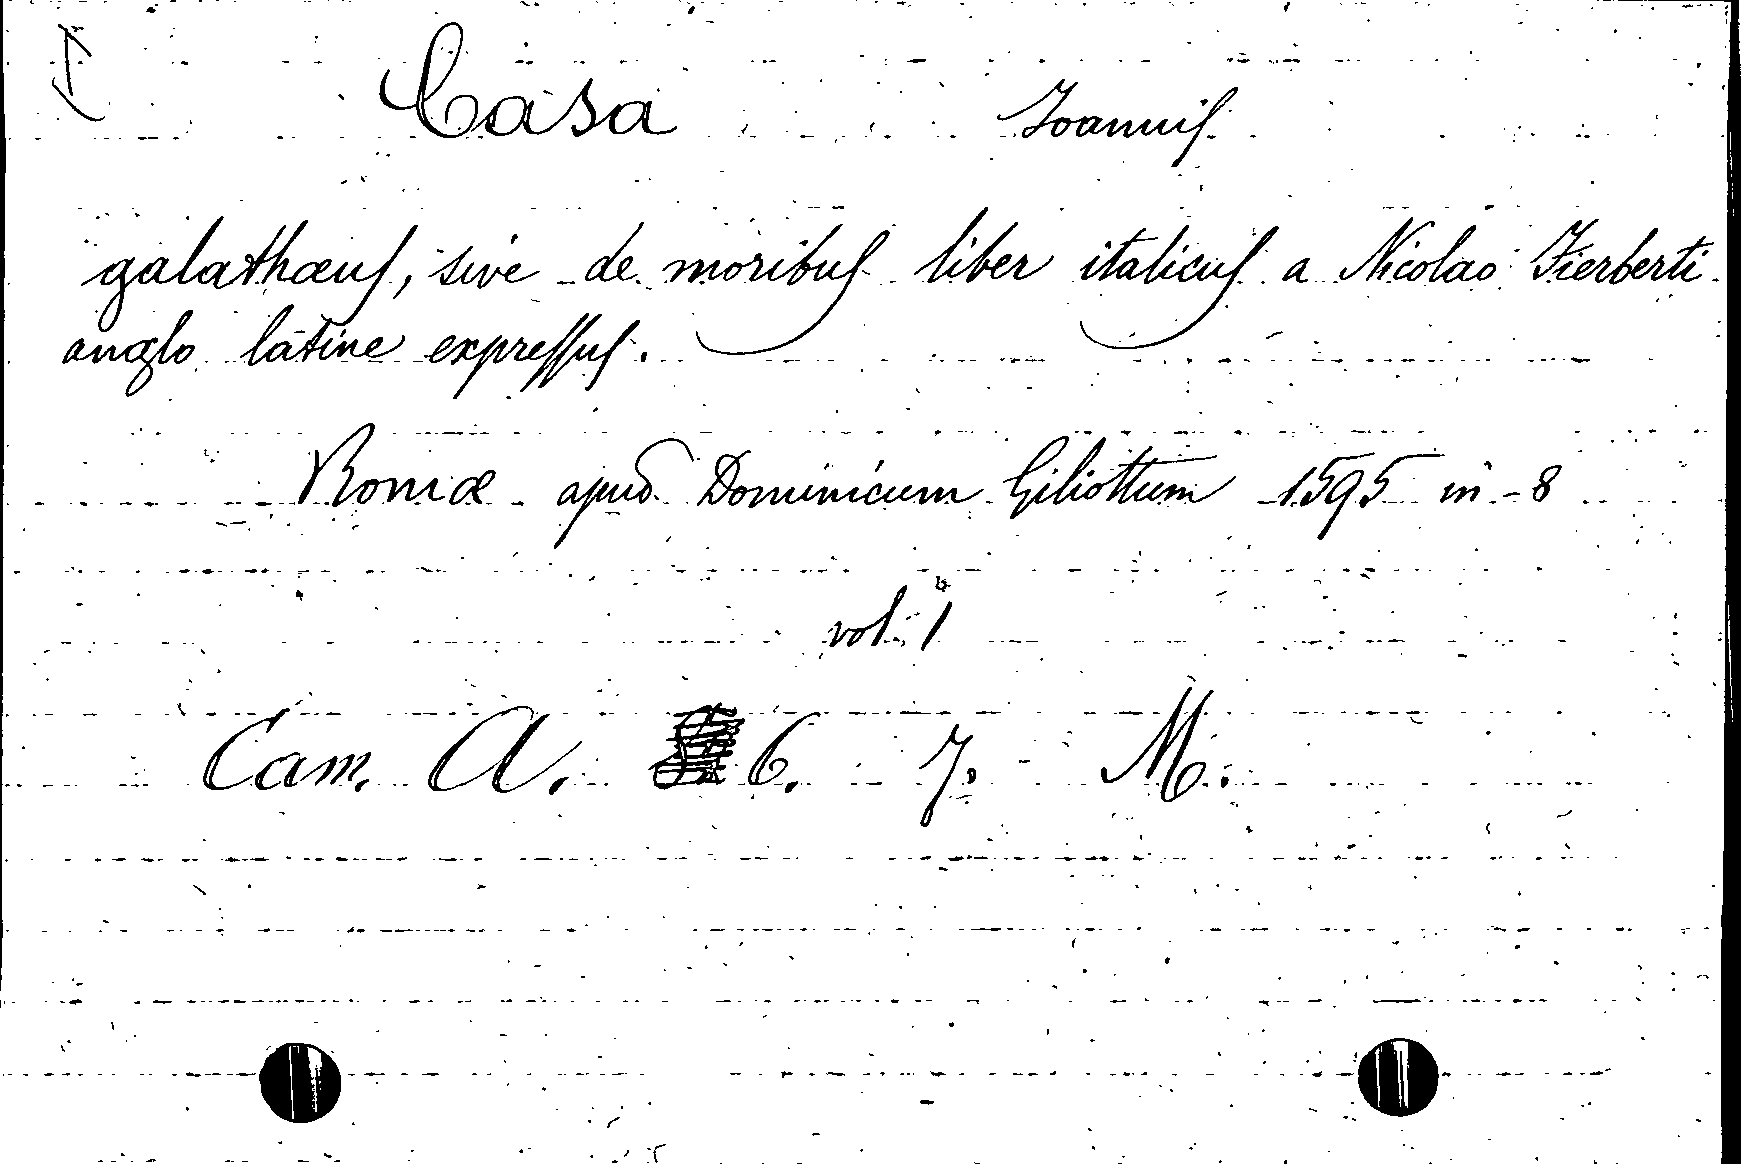 Casa Joannis
galathæus, sive de moribus liber italicus a Nicolao Fierberti
anglo latine expressus.
Romæ apud Dominicum Giliottum 1595 in-8
vol. 1
Cam. A. 6. 7. M.